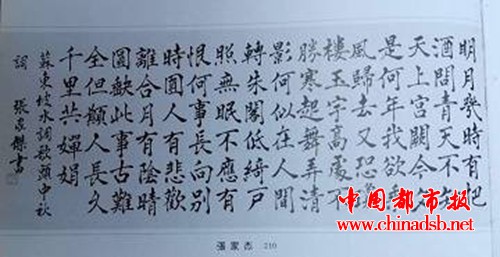 明月幾時有把
酒問青天不知
天上宮闕今夕
是何年我欲乘
風歸去又恐瓊
樓玉宇高處不
勝寒起舞弄清
影何似在人間
轉朱閣低綺戶
照無眠不應有
恨何事長向別
時圓人有悲歡
離合月有陰晴
圓缺此事古難
全但願人長久
千里共嬋娟
蘇東坡水調歌頭中秋
詞 張家傑書
張家杰 210
中國都市報
www.chinadsb.net